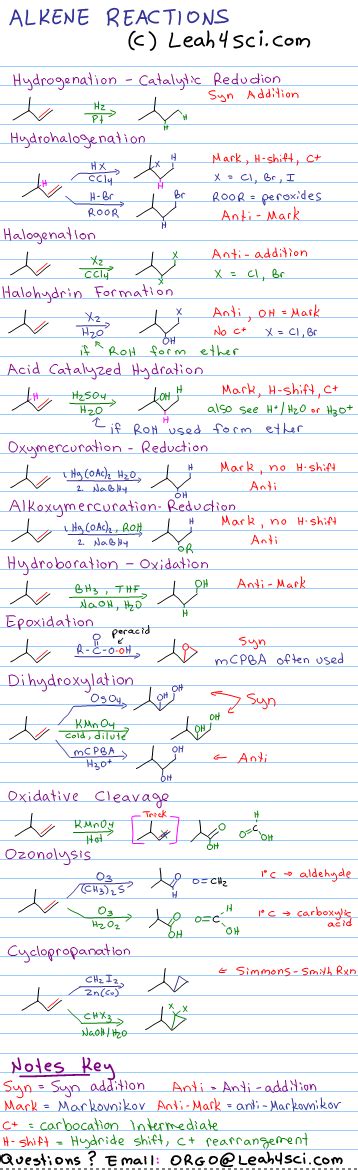 ALKENE REACTIONS
(C) Leah4Sci.com
Hydrogenation - Catalytic Reduction
H₂
Pt
H
H
Syn Addition
Hydrohalogenation
H
HX
CCl₄
X
H
H
Mark, H-shift, C+
X = Cl, Br, I
H-Br
ROOR
Br
H
ROOR = peroxides
Anti - Mark
Halogenation
X₂
CCl₄
X
X
Anti-addition
X = Cl, Br
Halohydrin Formation
X₂
H₂O
X
OH
Anti, OH = Mark
No C+ X = Cl, Br
if ROH form ether
Acid Catalyzed Hydration
H
H₂SO₄
H₂O
OH
H
H
Mark, H-shift, C+
also see H⁺/H₂O or H₃O⁺
if ROH used form ether
Oxymercuration - Reduction
1. Hg(OAc)₂ H₂O
2. NaBH₄
H
OH
Mark, no H-shift
Anti
Alkoxymercuration-Reduction
1. Hg(OAc)₂, ROH
2. NaBH₄
H
OR
Mark, no H-shift
Anti
Hydroboration - Oxidation
BH₃, THF
NaOH, H₂O
OH
H
Anti-Mark
Epoxidation
peracid
O
R-C-O-OH
O
Syn
mCPBA often used
Dihydroxylation
OsO₄
OH
OH
Syn
KMnO₄
cold, dilute
OH
OH
mCPBA
H₃O⁺
OH
OH
Anti
Oxidative Cleavage
KMnO₄
Hot
Trick
O
OH
O
C
H
OH
Ozonolysis
O₃
(CH₃)₂S
O
H
O=CH₂
1°C → aldehyde
O₃
H₂O₂
O
OH
O=C
H
OH
1°C → carboxylic
acid
Cyclopropanation
CH₂I₂
Zn(Cu)
Simmons-Smith Rxn
CHX₃
NaOH/H₂O
X X
Notes Key
Syn = Syn addition Anti = Anti-addition
Mark = Markovnikov Anti-Mark = anti-Markovnikov
C+ = carbocation Intermediate
H-shift = Hydride shift, C+ rearrangement
Questions? Email: ORGO@Leah4sci.com